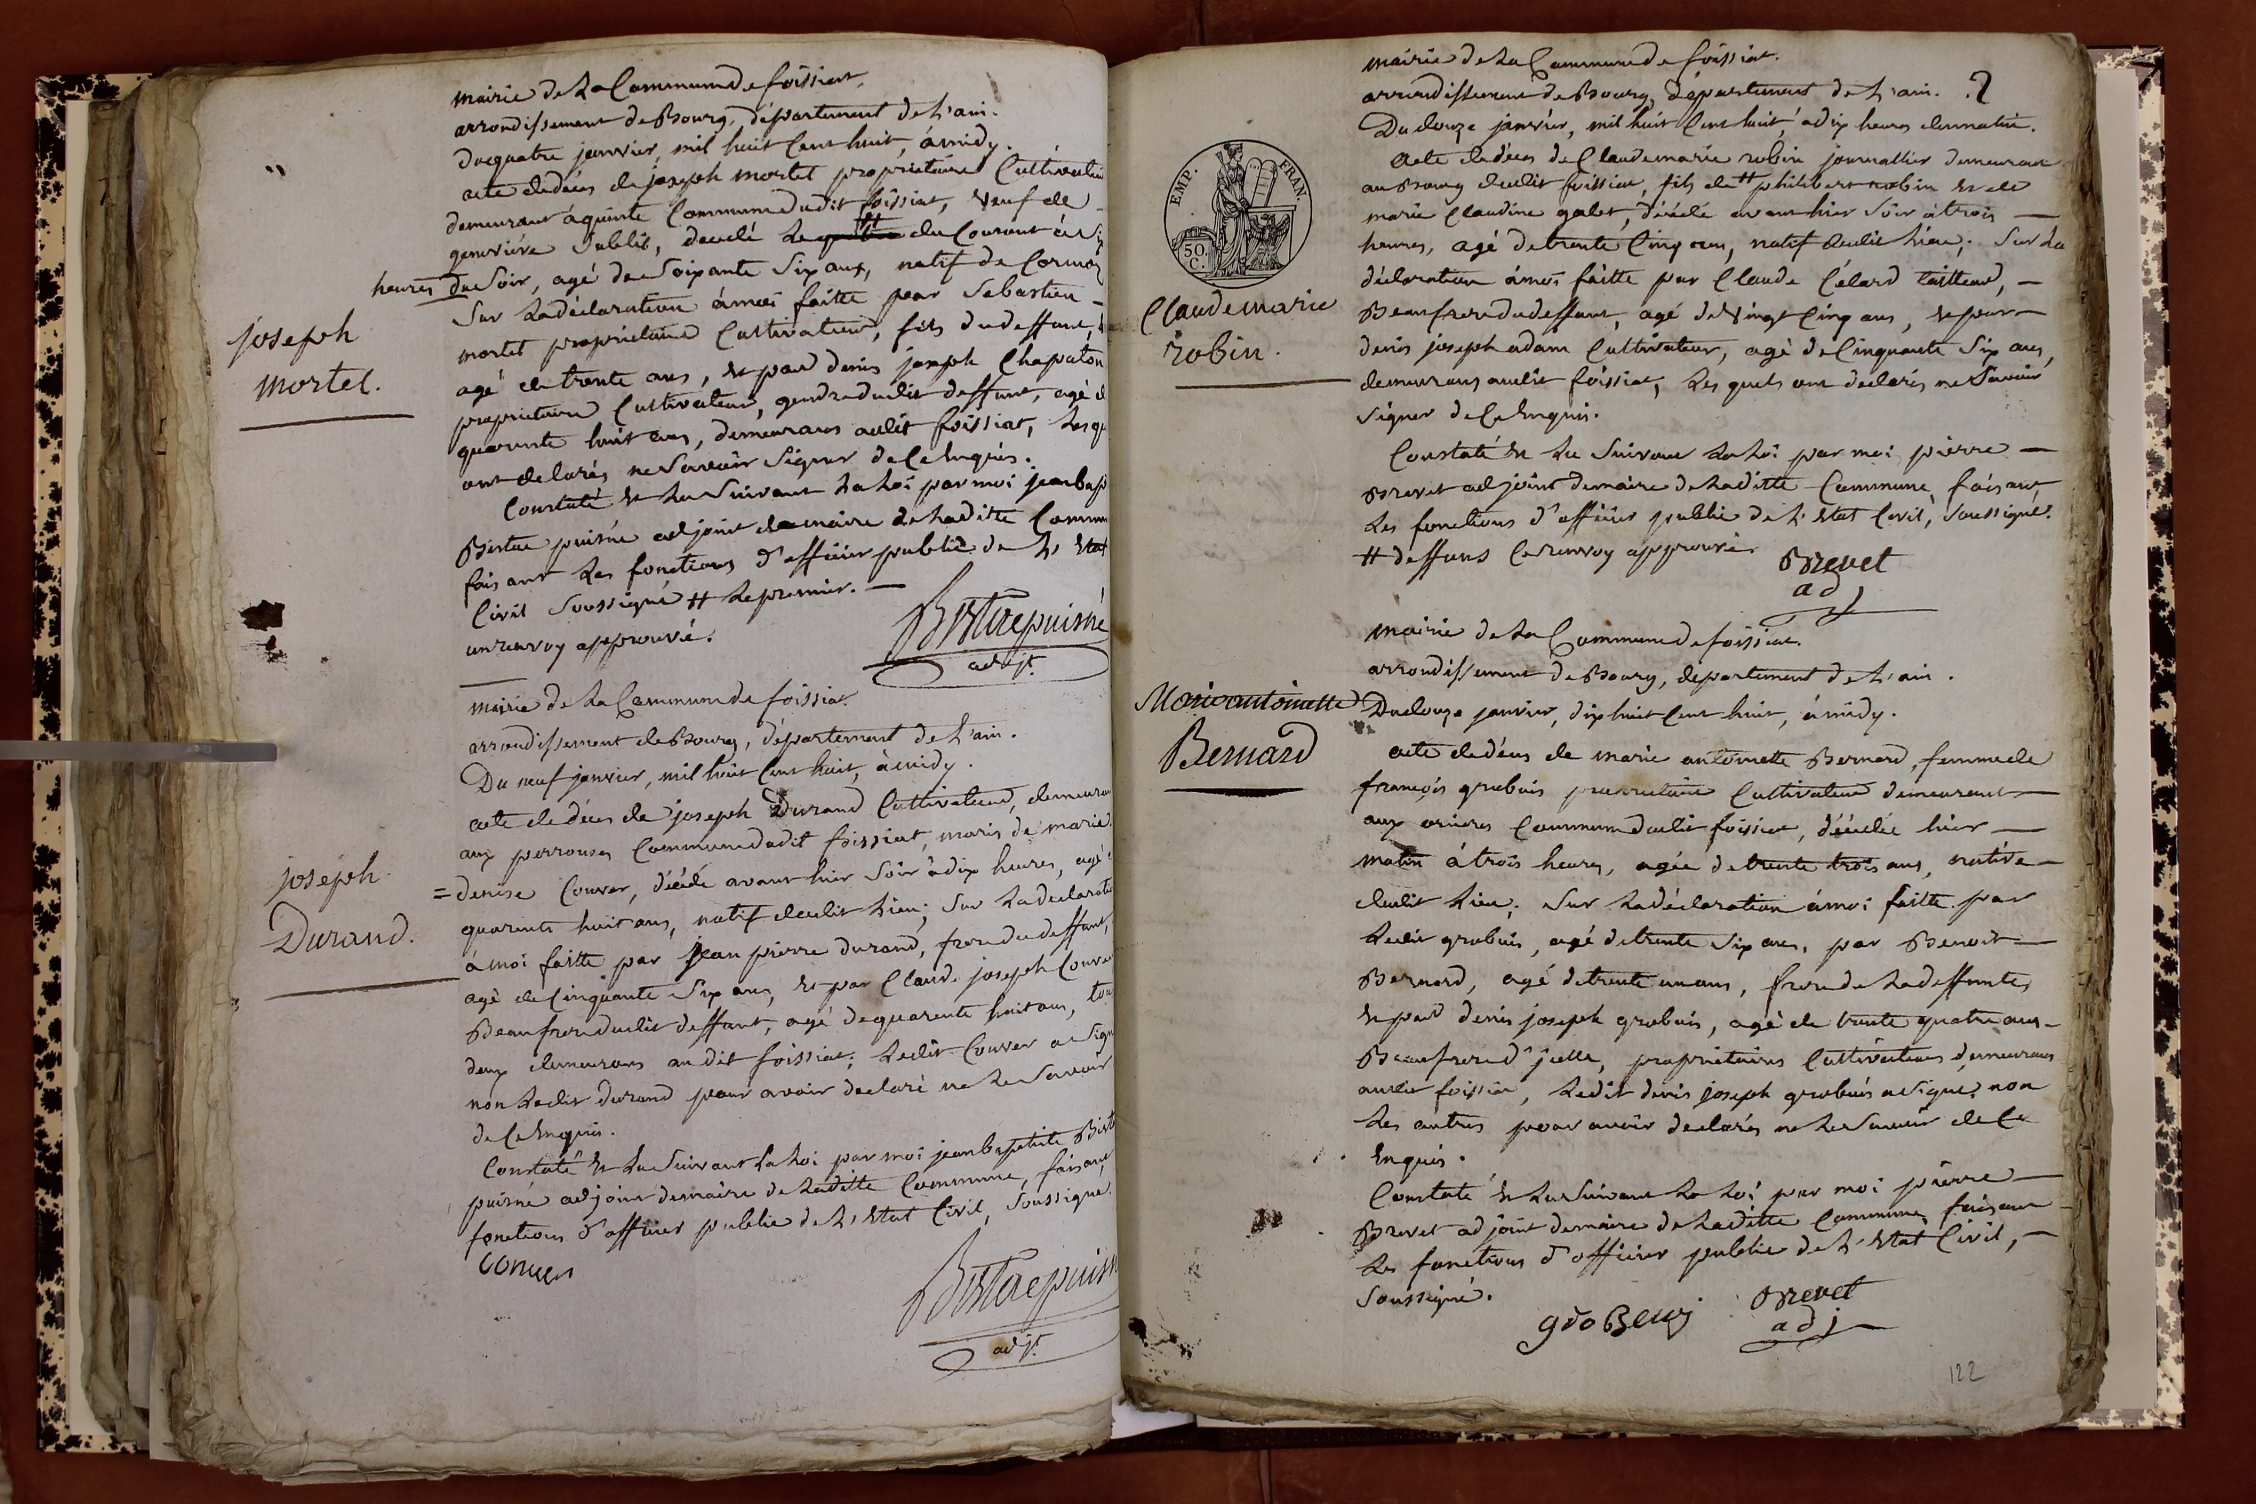 mairie de la Commune de foissiat.
arrondissement de Bourg, département de l'ain.
Du quatre janvier, mil huit Cent huit, à midy.
acte de déces de joseph mortel propriétaire Cultivateur
demeurant à quinte Commune dudit foissiat, veuf de
genevieve Sublet, decedé le # du Courant à Six
heures du Soir, agé de Soixante Six ans, natif de Cormoz
Sur la déclaration à moi faitte par Sebastien
mortel proprietaire Cultivateur, fils du deffunt,
agé de trente ans, et par denis joseph Chapaton
proprietaire Cultivateur, gendre dudit deffunt, agé d
quarente huit ans, demeurans audit foissiat, lesqu
ont declarés ne Savoir Signer de Ce Enquis.
Constaté et lu Suivant la loi par moi jean bap
Bistac puisné adjoint de maire de laditte Commun
faisant les fonctions d'officier public de l'Etat
Civil Soussigné # le premier.
un renvoy approuvé.
Bistac puisné
adjt.
joseph
mortel.
mairie de la Commune de foissiat.
arrondissement de Bourg, département de l'ain.
Du neuf janvier, mil huit Cent huit, à midy.
acte de déces de joseph Durand Cultivateur, demeuran
aux perrouses Commune dudit foissiat, maris de marie
= denise Couver, décédé avant hier Soir à dix heures, agé
quarente huit ans, natif dudit lieu; Sur la declarati
à moi faitte par jean pierre durand, frere du deffunt,
agé de Cinquante Six ans, et par Claude joseph Couver
Beaufrere dudit deffunt, agé de quarente huit ans, tou
deux demeurans audit foissiat; ledit Couver a Sign
non ledit durand pour avoir declaré ne le Savoir
de Ce Enquis.
Constaté et lu Suivant la loi par moi jean baptiste Bist
puisné adjoint de maire de laditte Commune, faisant
fonctions d'officier public de l'Etat Civil, Soussigné.
Couver
Bistac puisn
adjt.
joseph
Durand.
mairie de la Commune de foissiat.
arrondissement de Bourg, département de l'ain. 2
Du douze janvier, mil huit Cent huit, à dix heures du matin.
EMP. FRAN.
50.
C.
Claude marie
robin.
acte de déces de Claude marie robin journallier demeurant
au Bourg dudit foissiat, fils de # philibert robin et de
marie Claudine galet, décédé avant hier Soir à trois
heures, agé de trente Cinq ans, natif dudit lieu; Sur la
déclaration à moi faitte par Claude Célard tailleur,
Beaufrere du deffunt, agé de Vingt Cinq ans, et par
denis joseph adam Cultivateur, agé de Cinquante Six ans,
demeurans audit foissiat, les quels ont declarés ne Savoir
Signer de Ce Enquis.
Constaté et lu Suivant la loi par moi pierre
Brevet adjoint de maire de laditte Commune, faisant
les fonctions d'officier public de l'Etat Civil, Soussigné.
# deffunt Ce renvoy approuvé.
Brevet
adj
mairie de la Commune de foissiat.
arrondissement de Bourg, département de l'ain.
Marie antoinette
Bernard
Du douze janvier, dix huit Cent huit, à midy.
acte de déces de marie antoinette Bernard, femme de
françois grobuis proprietaire Cultivateur demeurant
aux Commune dudit foissiat, décédée hier
matin à trois heures, agée de trente trois ans, native
dudit lieu; Sur la déclaration à moi faitte par
ledit grobuis, agé de trente Six ans, par Benoit
Bernard, agé de trente un ans, frere de la deffunte,
et par denis joseph grobuis, agé de trente quatre ans
Beaufrere d'jcelle, proprietaires Cultivateurs, demeurans
audit foissiat, ledit denis joseph grobuis a Signé, non
les autres pour avoir declarés ne le Savoir de Ce
Enquis.
Constaté et lu Suivant la loi par moi pierre
Brevet adjoint de maire de laditte Commune, faisant
les fonctions d'officier public de l'Etat Civil,
Soussigné.
Brevet
adj
122